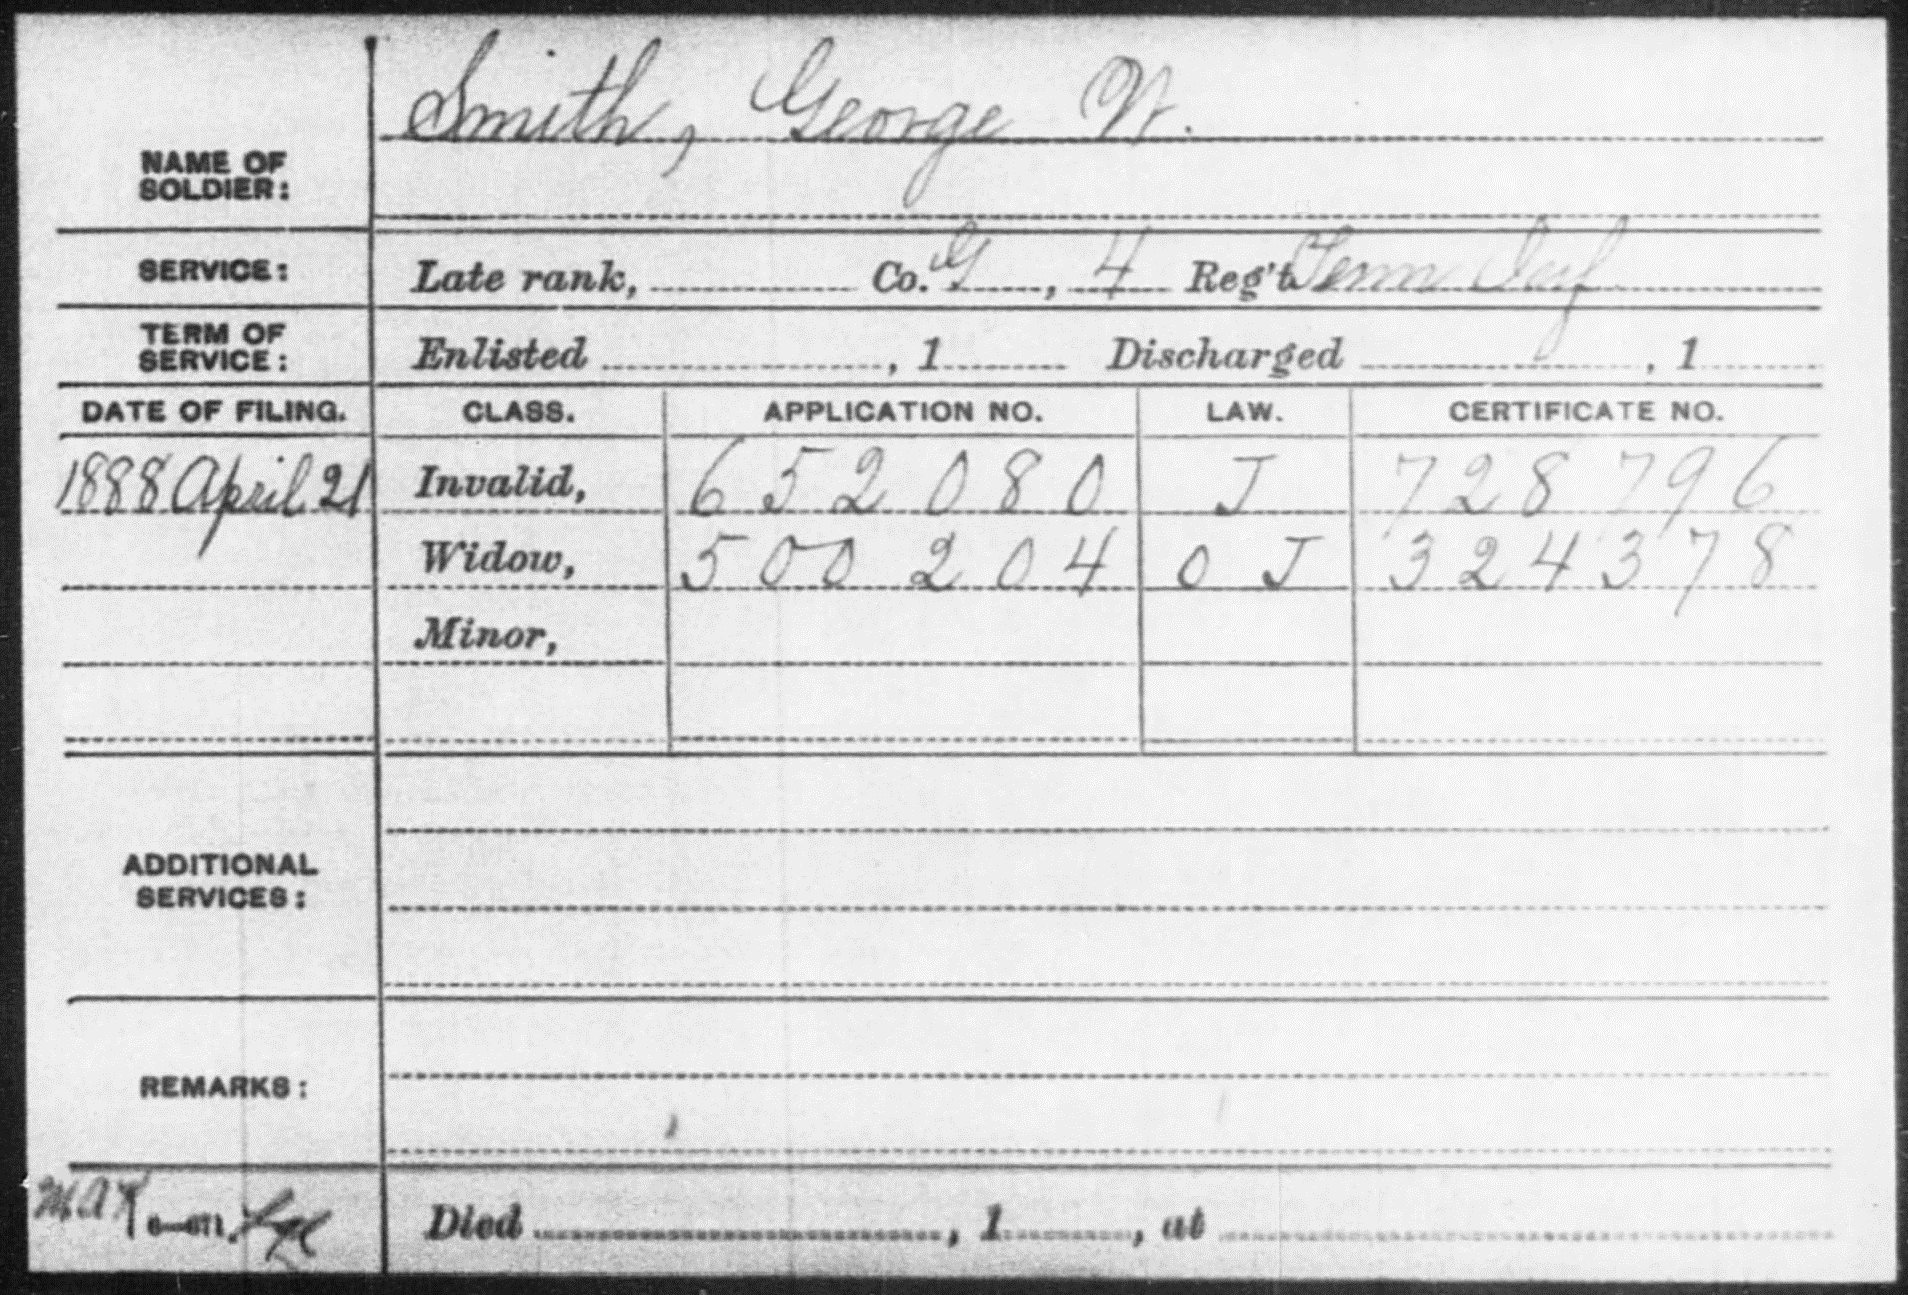 Smith, George W.
NAME OF
SOLDIER:
SERVICE: Late rank, Co. G, 4 Reg't Tenn Inf
TERM OF
SERVICE: Enlisted , 1 Discharged , 1
DATE OF FILING. CLASS. APPLICATION NO. LAW. CERTIFICATE NO.
1888 April 21 Invalid, 652080 J 728796
Widow, 500204 OJ 324378
Minor,
ADDITIONAL
SERVICES:
REMARKS:
6—671. Died , 1 , at